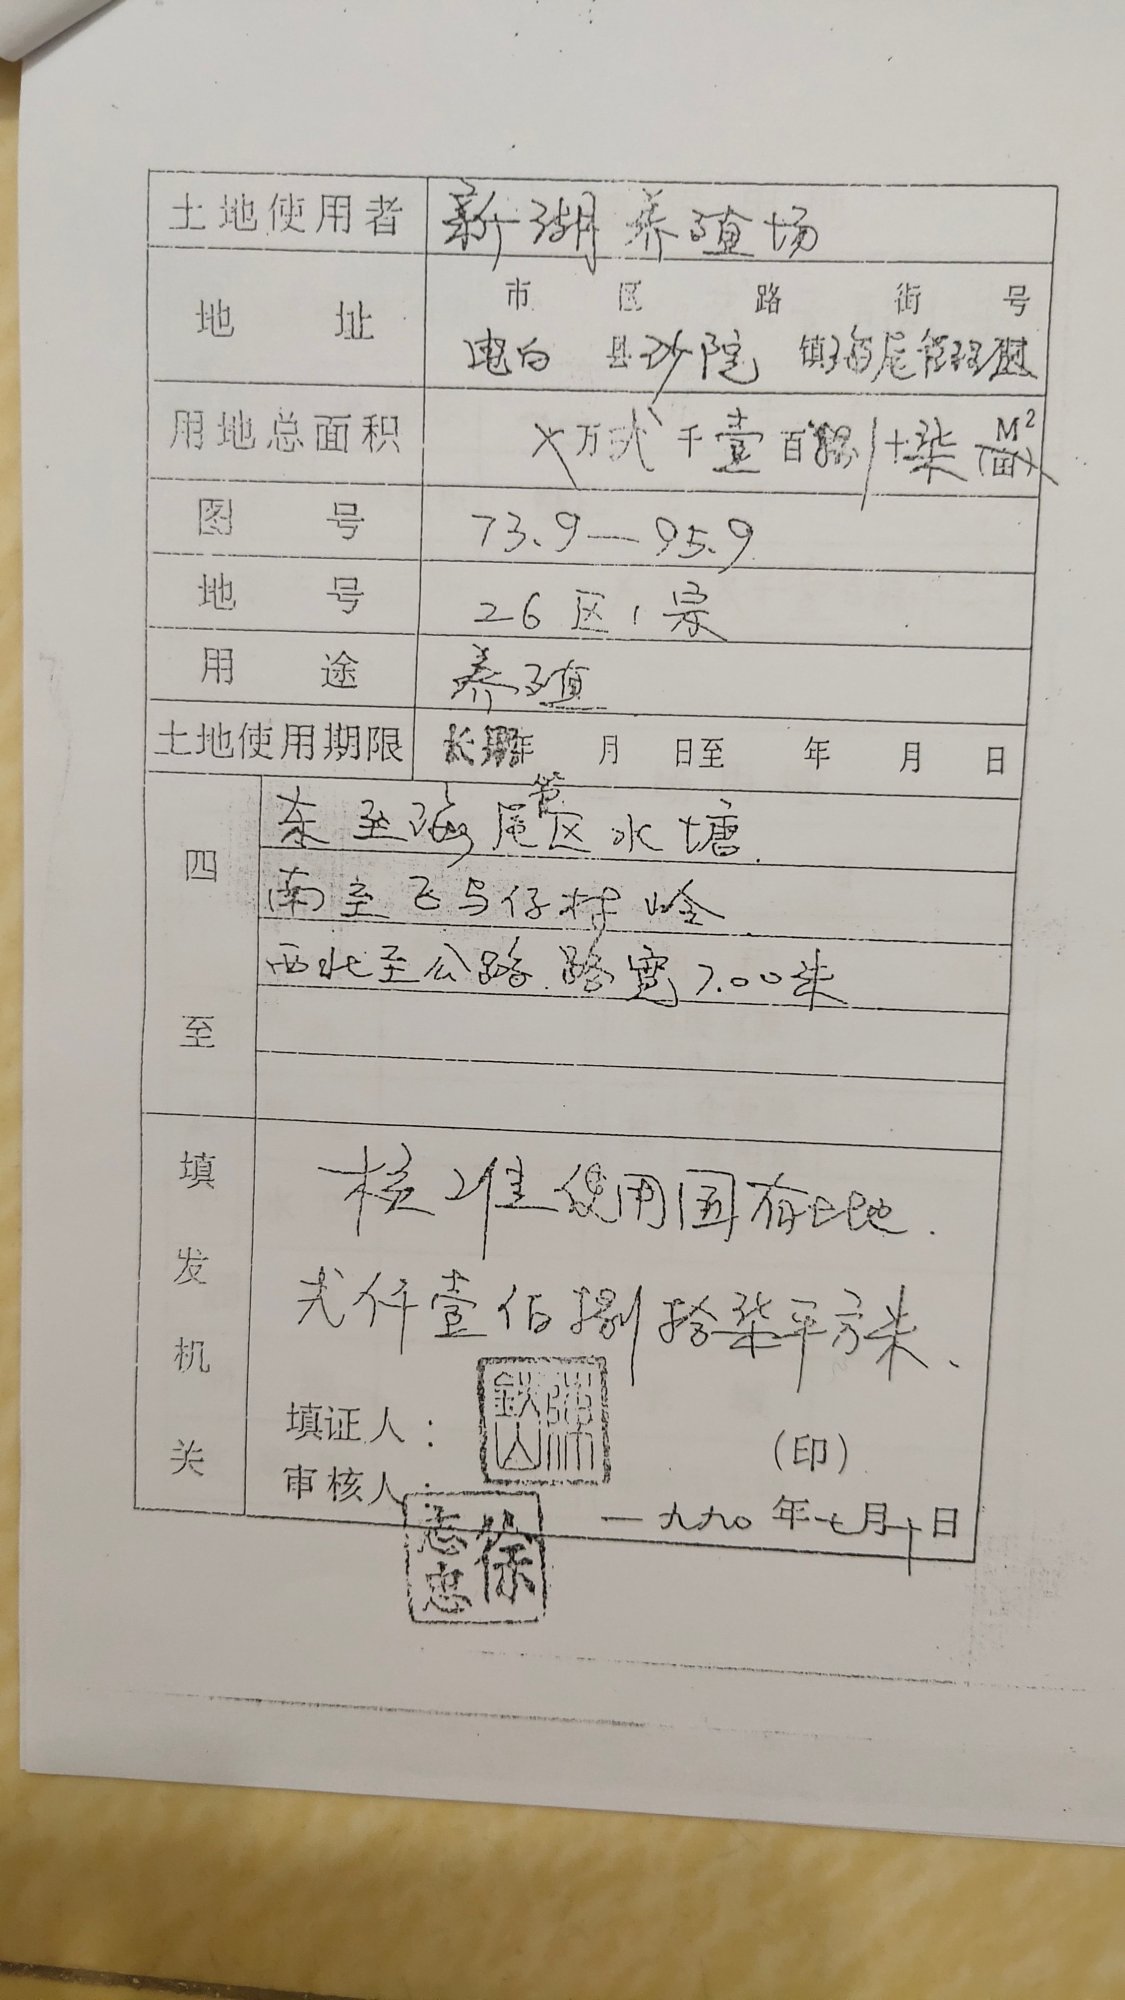 土地使用者 新湖养殖场
地址 市 区 路 街 号
电白 县沙院 镇海尾管理区
用地总面积 ㄨ万弍千壹百捌十柒 M² (亩)
图号 73.9—95.9
地号 26区1宗
用途 养殖
土地使用期限 长期年 月 日至 年 月 日
四至 东至海尾管区水塘.
南至飞鸟仔村岭
西北至公路.路宽7.00米
填发机关 核准使用国有土地.
弍仟壹佰捌拾柒平方米、
填证人: 铁山
(印)
审核人: 徐志忠
一九九〇年七月十日